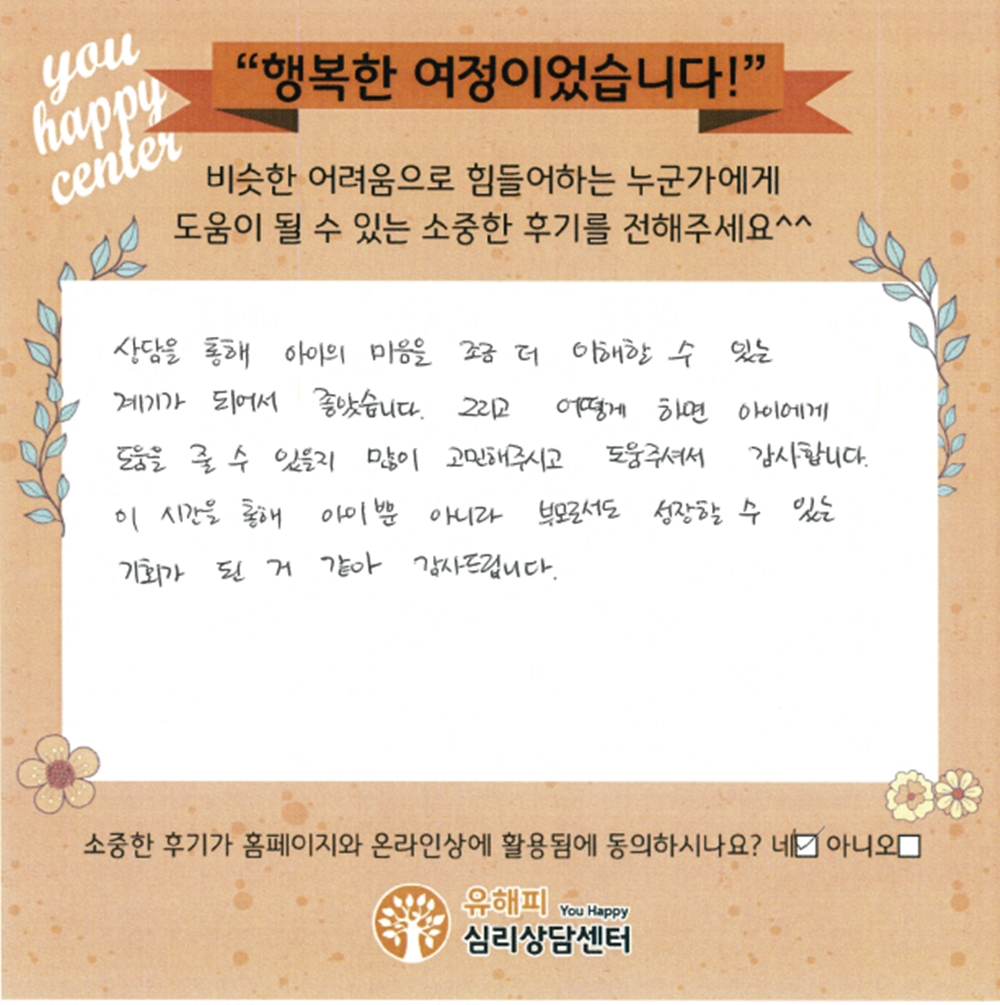 you
happy
center
“행복한 여정이었습니다!”
비슷한 어려움으로 힘들어하는 누군가에게
도움이 될 수 있는 소중한 후기를 전해주세요^^
상담을 통해 아이의 마음을 조금 더 이해할 수 있는
계기가 되어서 좋았습니다. 그리고 어떻게 하면 아이에게
도움을 줄 수 있을지 많이 고민해주시고 도움주셔서 감사합니다.
이 시간을 통해 아이뿐 아니라 부모로서도 성장할 수 있는
기회가 된 거 같아 감사드립니다.
소중한 후기가 홈페이지와 온라인상에 활용됨에 동의하시나요? 네☑ 아니오☐
유해피 You Happy
심리상담센터